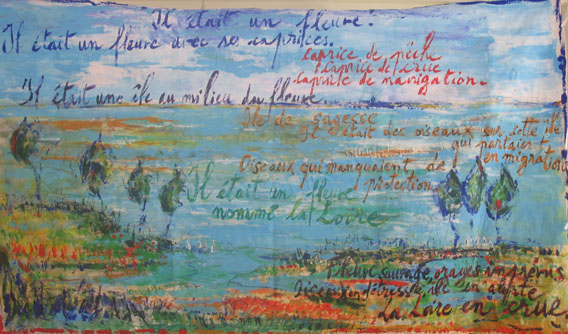 Il était un fleuve.
Il était un fleuve avec ses caprices.
caprice de pêche
caprice de crue
caprice de navigation.
Il était une île au milieu du fleuve...
île de sagesse
Il était des oiseaux sur cette île
qui partaient
en migration
Oiseaux qui manquaient de
protection.
Il était un fleuve
nommé la Loire
Fleuve sauvage, orages imprévus
Oiseaux en détresse, île en alerte
La Loire en crue.